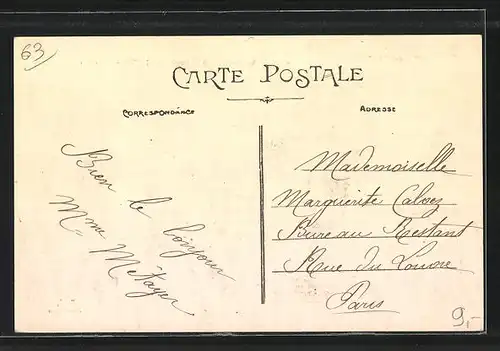 63
CARTE POSTALE
CORRESPONDANCE
ADRESSE
Bien le bonjour
Mme Métayer
Mademoiselle
Marguerite Calvez
Bureau Restant
Rue du Louvre
Paris
9,-